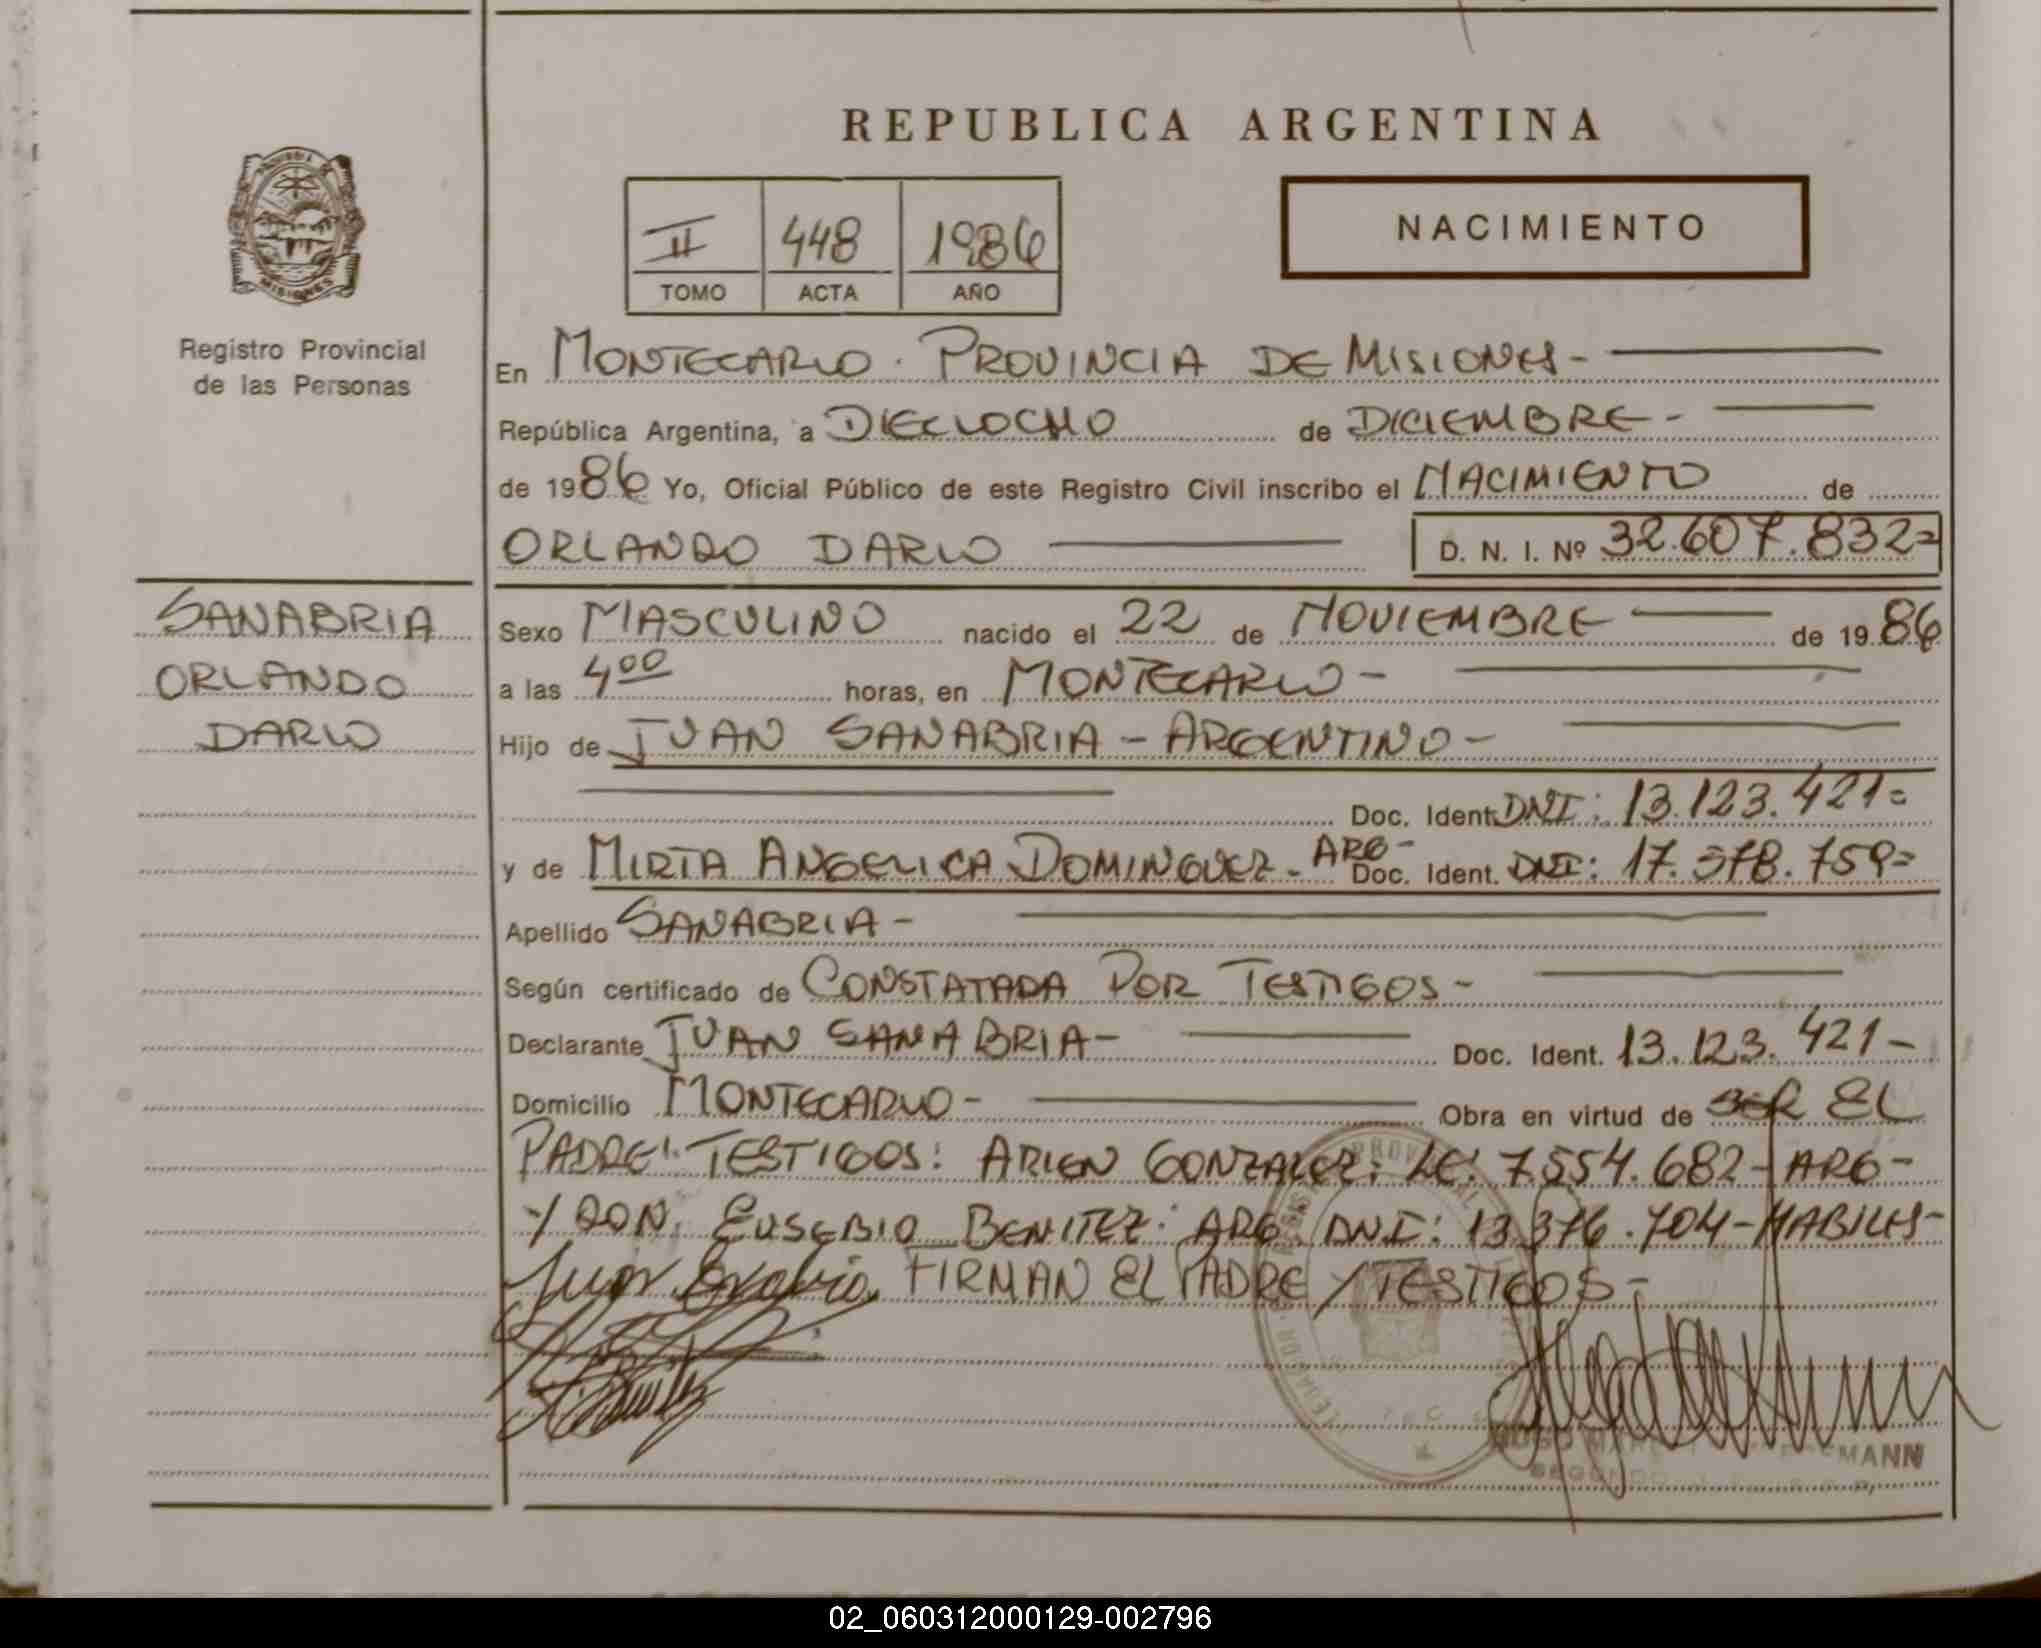 REPUBLICA ARGENTINA
MISIONES
Registro Provincial
de las Personas
II 448 1986
TOMO ACTA AÑO
NACIMIENTO
En MONTECARLO. PROVINCIA DE MISIONES-
República Argentina, a DIECIOCHO de DICIEMBRE-
de 1986 Yo, Oficial Público de este Registro Civil inscribo el NACIMIENTO de
ORLANDO DARIO D. N. I. Nº 32.607.832=
SANABRIA
ORLANDO
DARIO
Sexo MASCULINO nacido el 22 de NOVIEMBRE de 1986
a las 4 00 horas, en MONTECARLO-
Hijo de JUAN SANABRIA - ARGENTINO-
Doc. Ident. DNI: 13.123.421=
y de MIRTA ANGELICA DOMINGUEZ- ARG- Doc. Ident. DNI: 17.378.759=
Apellido SANABRIA-
Según certificado de CONSTATADA POR TESTIGOS-
Declarante JUAN SANABRIA- Doc. Ident. 13.123.421-
Domicilio MONTECARLO- Obra en virtud de SER EL
PADRE: TESTIGOS: ARIEN GONZALEZ: LE: 7.554.682- ARG-
Y DON. EUSEBIO BENITEZ: ARG. DNI: 13.376.704-HABILES-
Juan Sanabria FIRMAN EL PADRE Y TESTIGOS-
HUGO
SEGUNDO
02_060312000129-002796